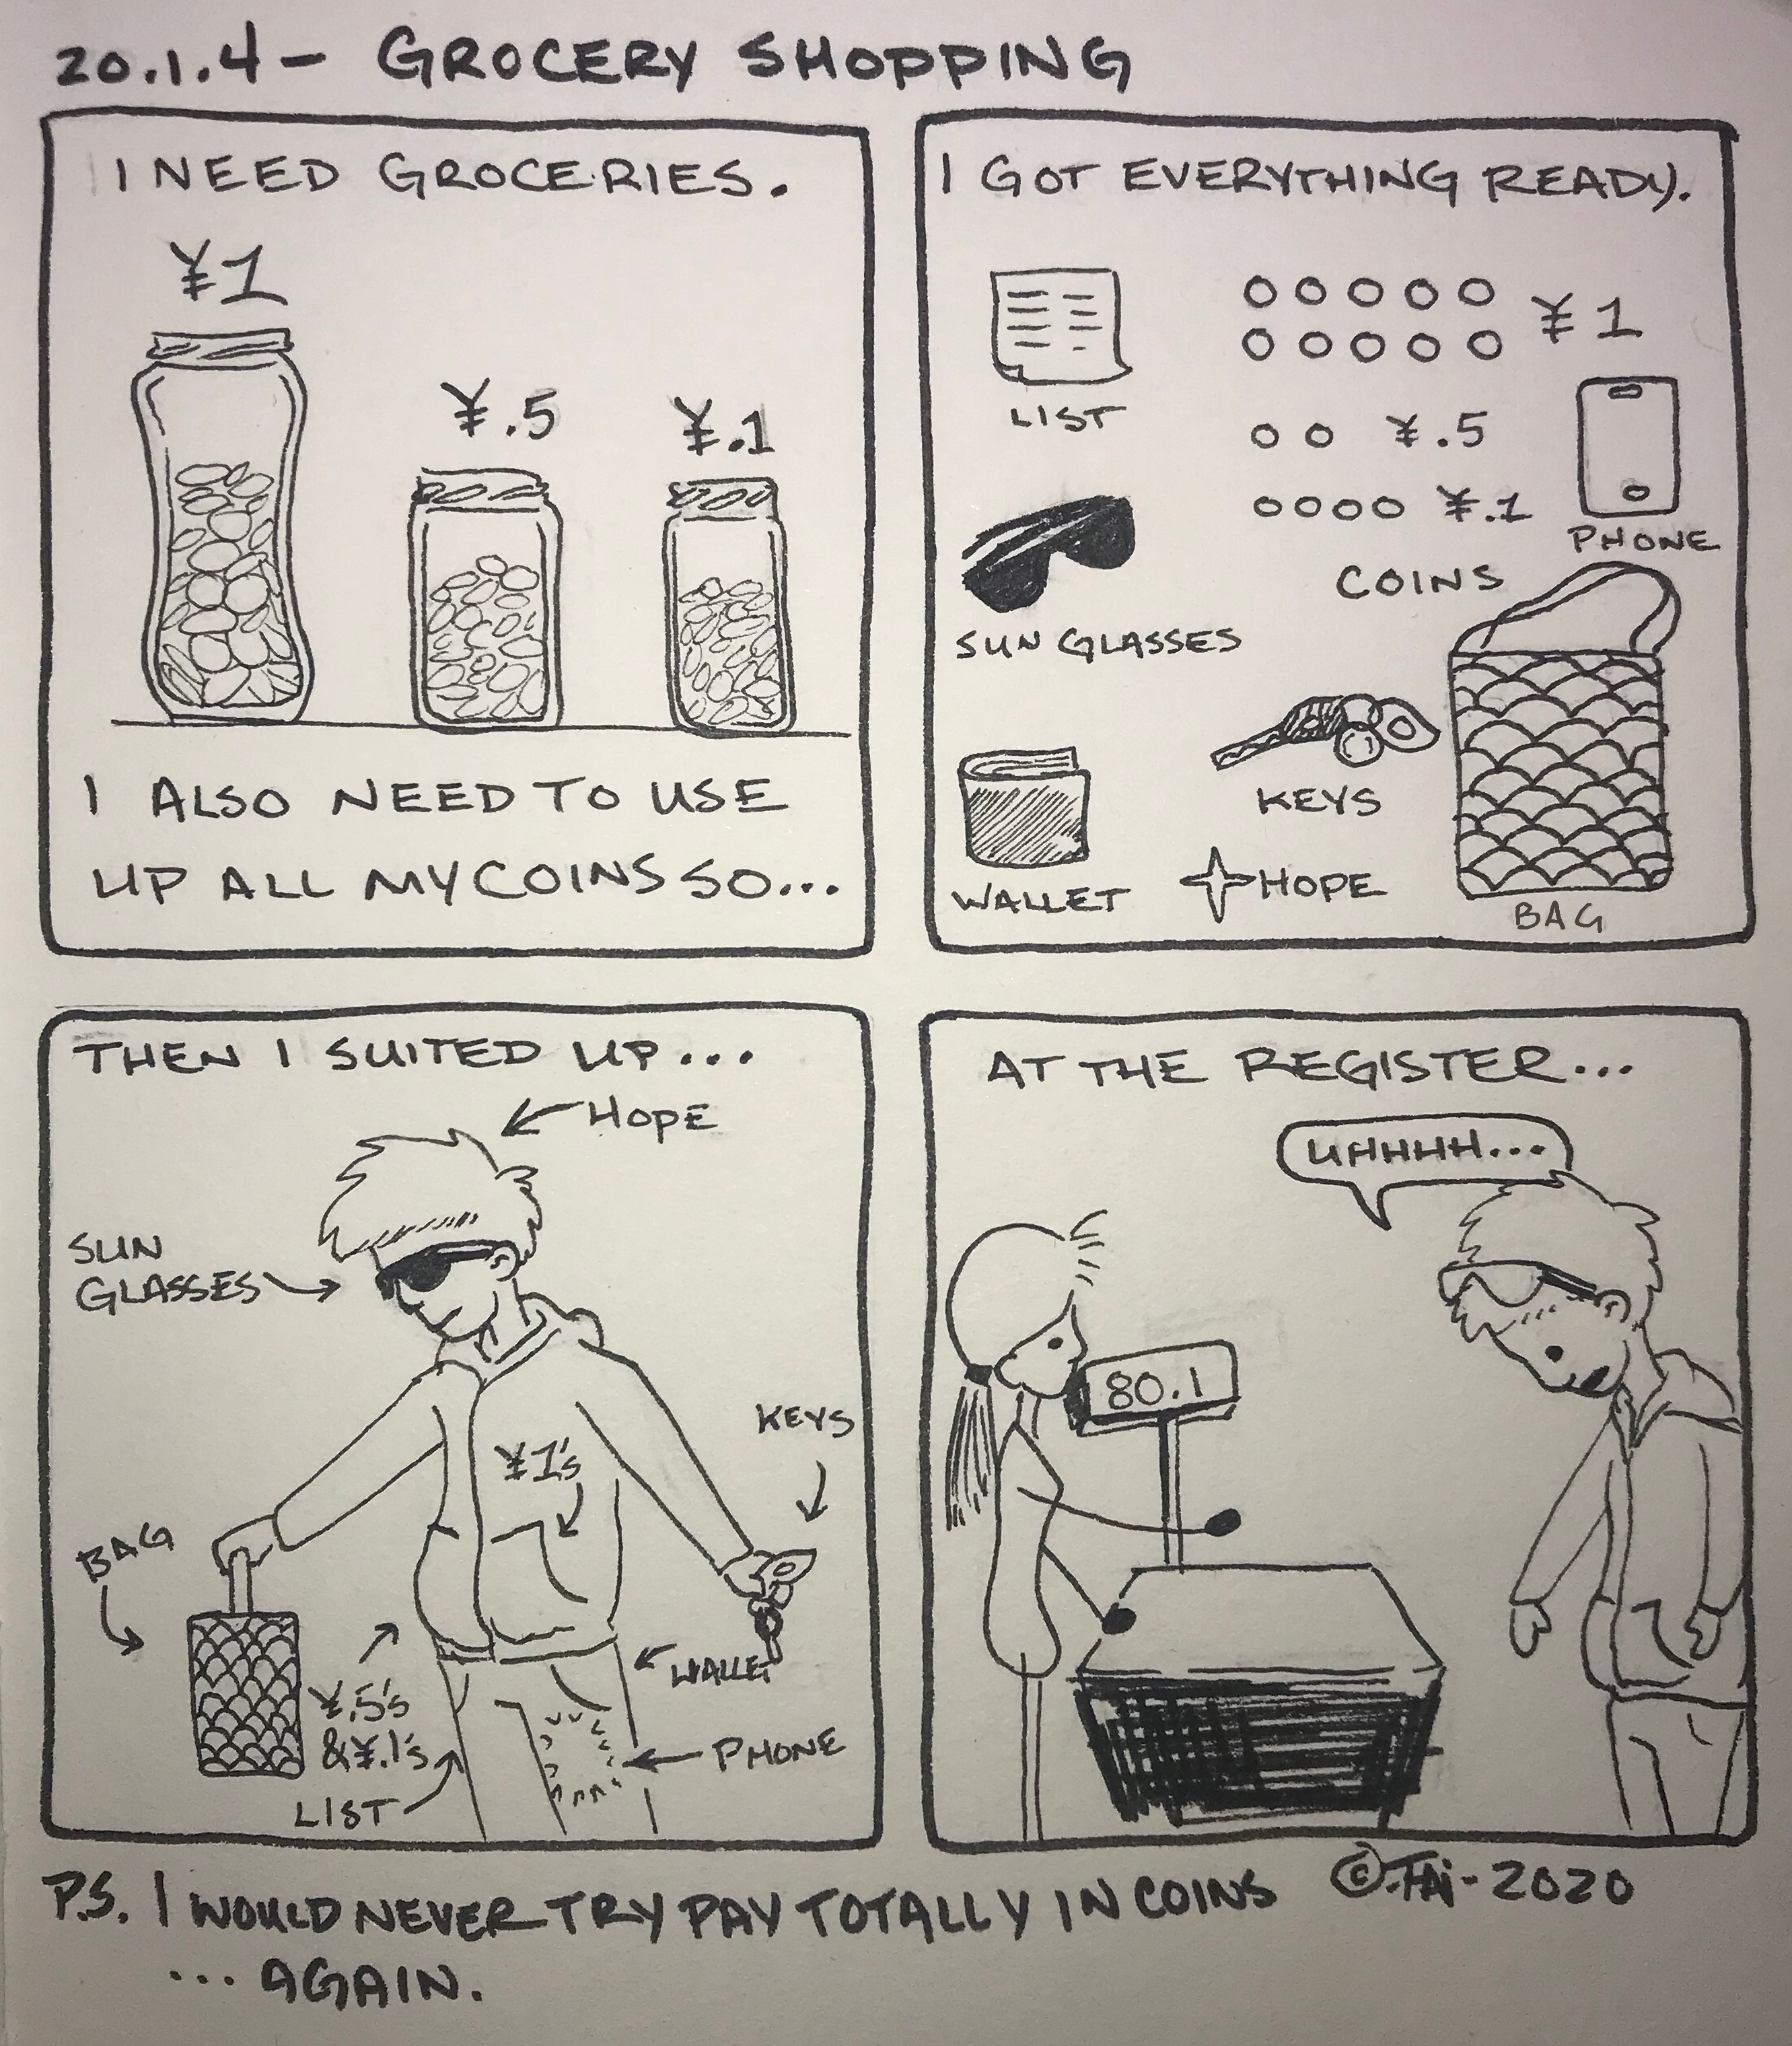 20.1.4 - GROCERY SHOPPING
I NEED GROCERIES.
¥1
¥.5
¥.1
I ALSO NEED TO USE
UP ALL MY COINS SO...
I GOT EVERYTHING READY.
LIST
¥1
¥.5
¥.1
COINS
PHONE
SUN GLASSES
KEYS
WALLET
HOPE
BAG
THEN I SUITED UP...
HOPE
SUN
GLASSES
KEYS
¥1's
BAG
WALLET
¥.5's
& ¥.1's
PHONE
LIST
AT THE REGISTER...
UHHHH...
80.1
P.S. I WOULD NEVER TRY PAY TOTALLY IN COINS
... AGAIN.
©.TAi-2020